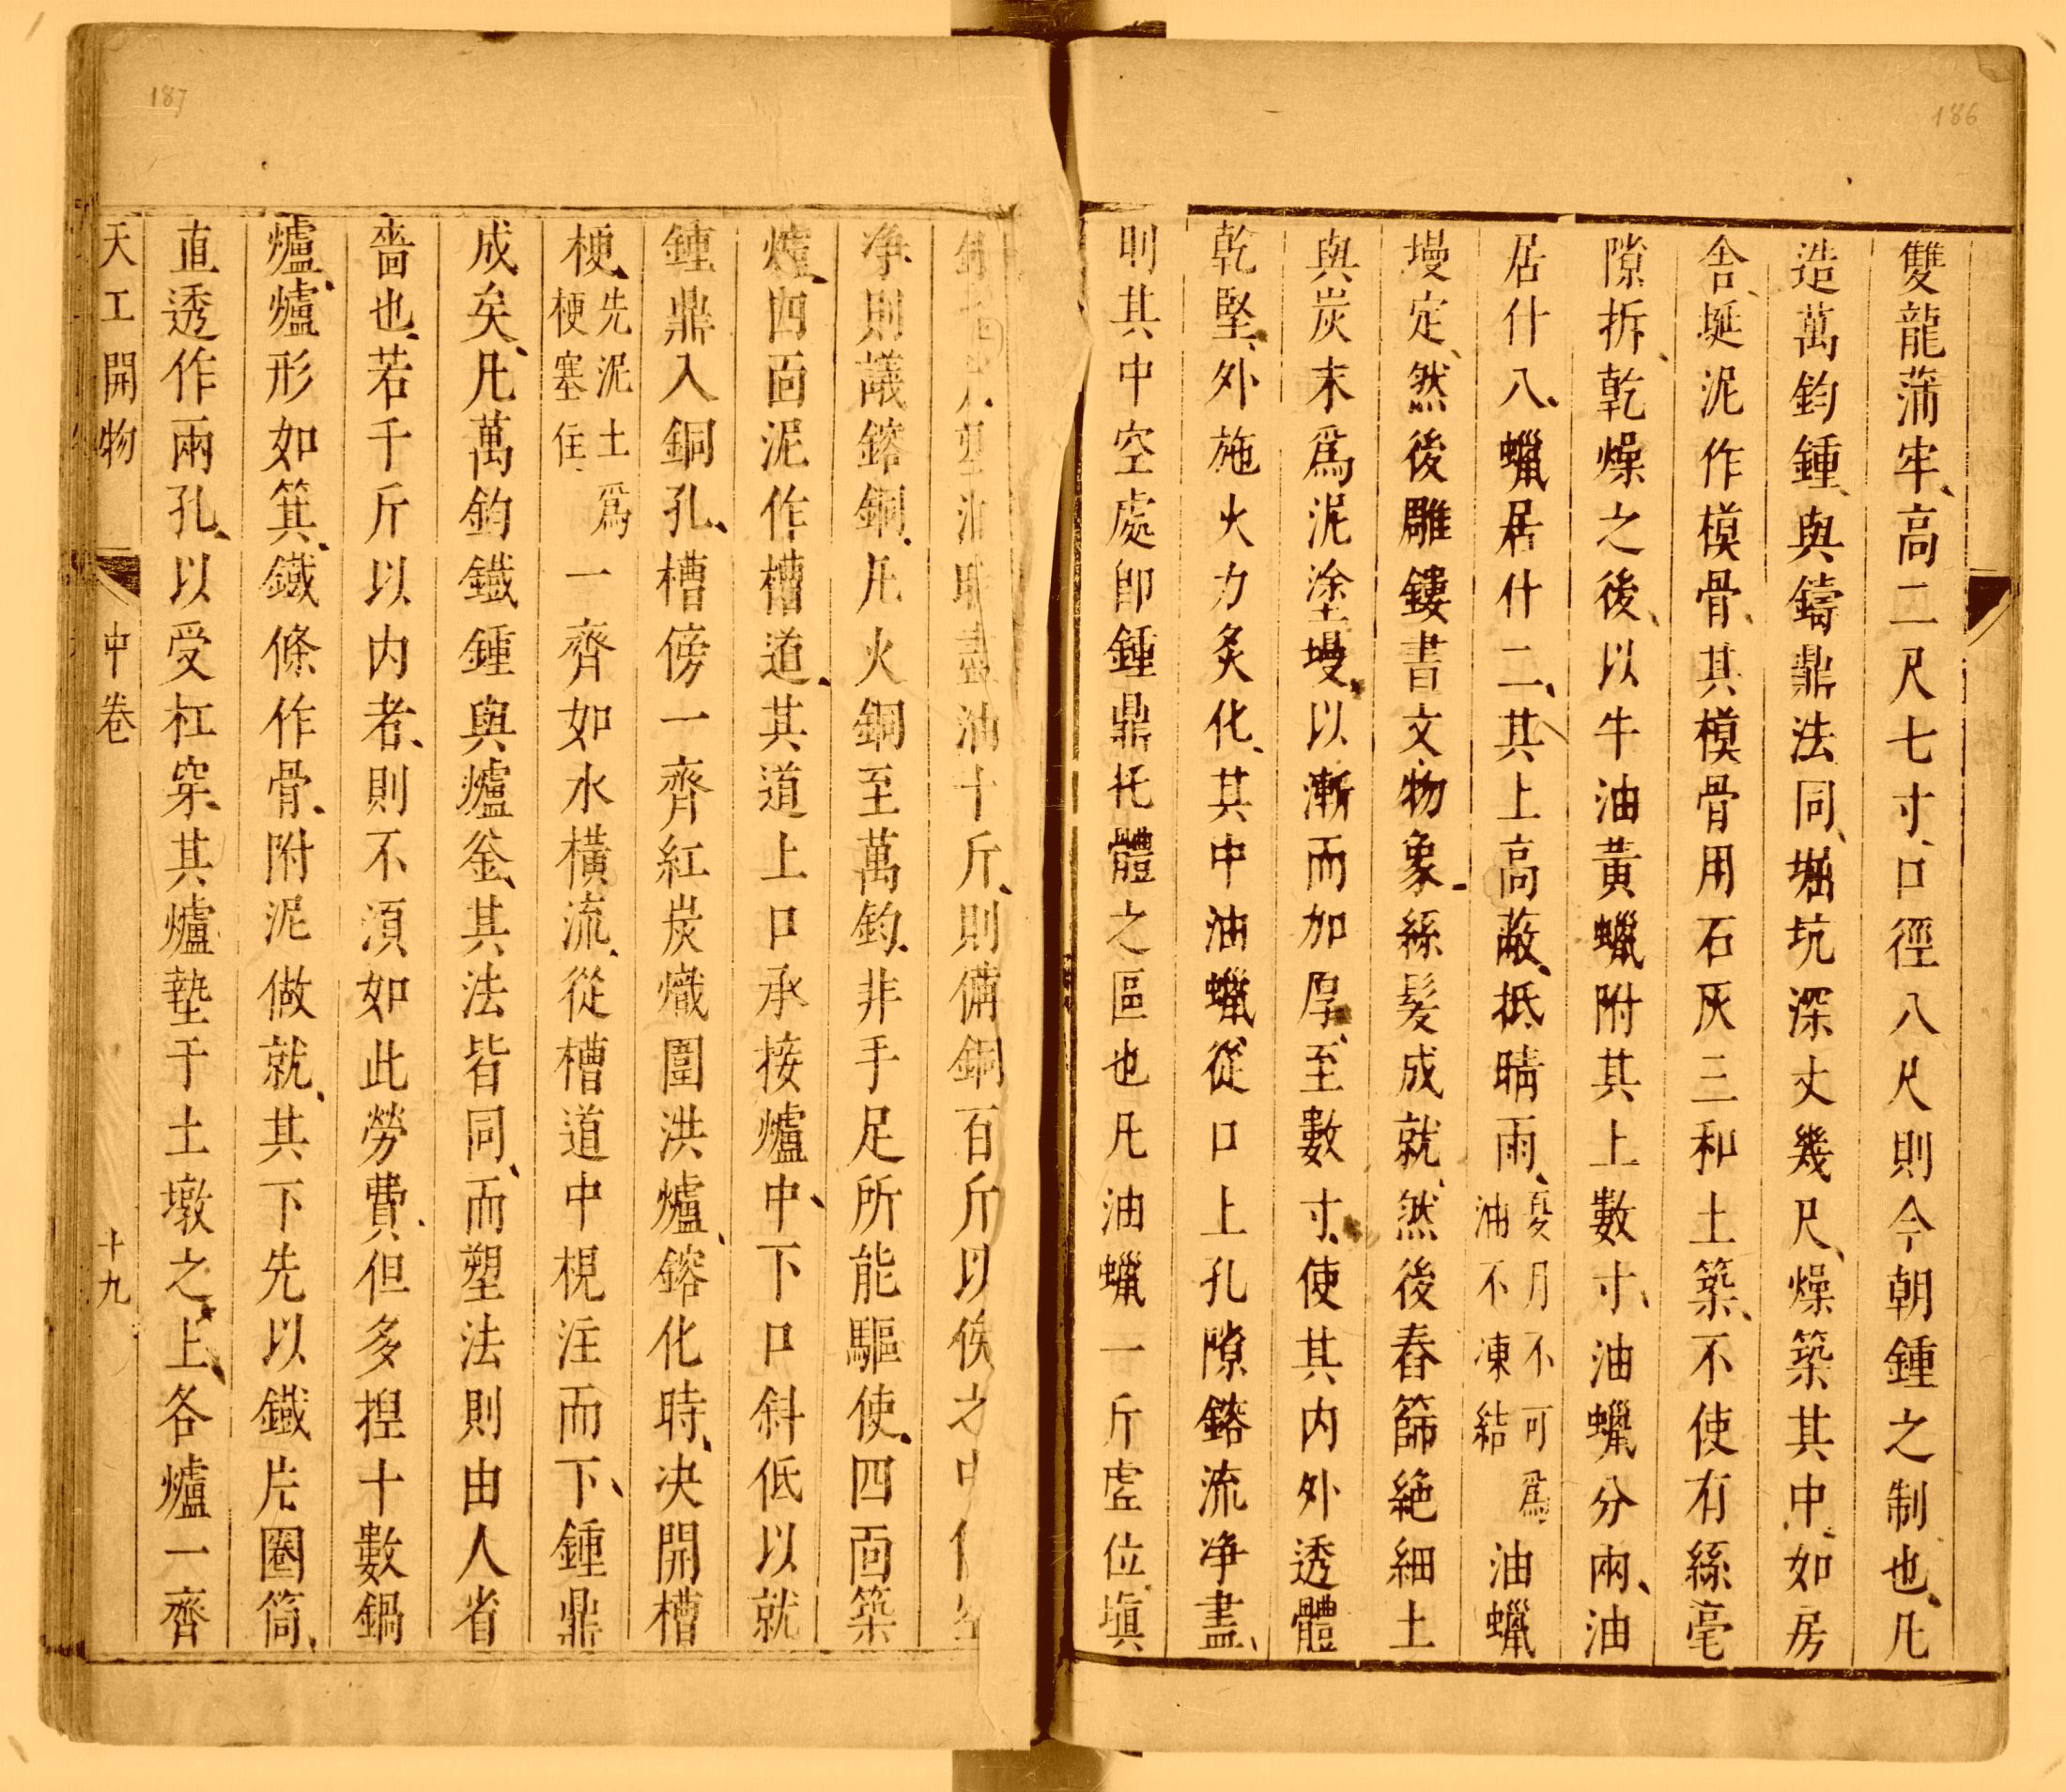 186
雙龍蒲牢、高二尺七寸、口徑八尺則今朝鍾之制也、凡
造萬鈞鍾、與鑄鼎法同、堀坑深丈幾尺、燥築其中、如房
舍、埏泥作模骨、其模骨用石灰三和土築、不使有絲毫
隙拆、乾燥之後、以牛油黃蠟附其上數寸、油蠟分兩、油
居什八、蠟居什二、其上高蔽、抵晴雨、夏月不可爲油不凍結油蠟
墁定、然後雕鏤書文物象、絲髮成就、然後舂篩絶細土
與炭末爲泥塗墁、以漸而加厚、至數寸、使其内外透體
乾堅、外施火力炙化、其中油蠟從口上孔隙鎔流净盡、
則其中空處卽鍾鼎托體之區也凡油蠟一斤虛位塡
187
油十斤、則備銅百斤以俟之
净則議鎔銅、凡火銅至萬鈞、非手足所能驅使、四面築
爐、四面泥作槽道、其道上口承接爐中、下口斜低以就
鍾鼎入銅孔、槽傍一齊紅炭熾圍洪爐、鎔化時、决開槽
梗、先泥土爲梗塞住、一齊如水橫流、從槽道中梘注而下、鍾鼎
成矣、凡萬鈞鐵鍾與爐釜、其法皆同、而塑法則由人省
嗇也、若千斤以内者、則不湏如此勞費、但多揑十數鍋
爐、爐形如箕、鐵條作骨、附泥做就、其下先以鐵片圈筒、
直透作兩孔、以受杠穿、其爐墊于土墩之上、各爐一齊
天工開物 中卷 十九